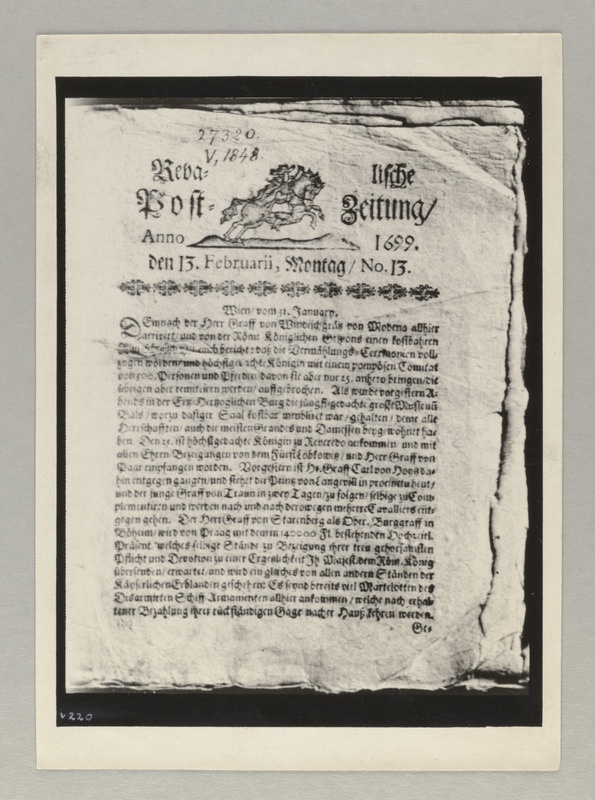 27320.
V, 1848.
Reva- lische
Post- Zeitung/
Anno 1699.
den 13. Februarii, Montag/ No. 13.
Wien/ vom 31. January.
DEmnach der Herr Graff von Windischgräz von Modena allhier
arrivirt/ und von der Röm: Königlichen Gespons einen kostbahren
auch bericht: daß die Vermählungs-Ceremonien voll-
zogen worden/ und höchstgedachte Königin mit einem pompösen Comitat
von 500. Personen und Pferden/ davon sie aber nur 25. anhero bringen/ die
übrigen aber remitiren werden/ auffgebrochen. Als wurde vorgestern A-
bends in der Ertz-Hertzoglichen Burg die jüngst-gedachte grosse Musie uñ
Bals/ worzu dasiger Saal kostbar meublirt war/ gehalten/ deme alle
Herrschafften/ auch die meisten Grandes und Damessen beyg wohnet ha-
ben. Den 25. ist höchstgedachte Königin zu Reveredo ankommen/ und mit
allen Ehren-Bezeigungen von dem Fürst Lobkowitz/ und Herr Graff von
Paar empfangen worden. Vorgestern ist Hr. Graff Carl von Hoyos da-
hin entgegen gangen/ und stehet die Printz von Langevill in procinctu heut/
und der junge Graff von Traun in zwey Tagen/ zu folgen/ selbige zu Com-
plementiren und werden nach und nach derowegen mehrere Cavalliers ent-
gegen gehen. Der Herr Graff von Starenberg als Ober-Burggraff in
Böheim/ wird von Praag mit dem in 140000 Fl. bestehenden Hochzeitl.
Präsent/ welches selbige Stände zu Bezeigung ihrer treu gehorsamsten
Pflicht und Devotion zu einer Ergetzlichkeit Ih Majest. dem Röm. König
übersenden/ erwartet/ und wird ein gleiches von allen andern Ständen der
Käyserlichen Erblanden geschehen: Es seynd bereits viel Martelotten des
Disarmirten Schiff-Armamenten allhier ankommen/ welche nach erhal-
tener Bezahlung ihrer rückständigen Gage nacher Hauß kehren werden.
Ge-
v220